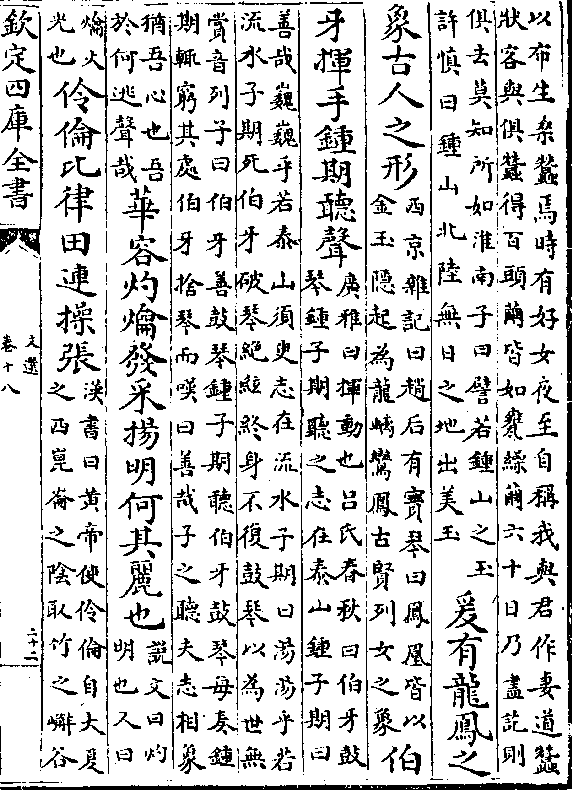 以布生桑蠶焉時有好女夜至自稱我與君作妻道蠶
狀客與俱蠶得百頭繭皆如甕繰繭六十日乃盡訖則
俱去莫知所如淮南子曰譬若鍾山之玉
許慎曰鍾山北陸無日之地出美玉
爰有龍鳳之
象古人之形
西京雜記曰趙后有寶琴曰鳳凰皆以
金玉隱起為龍螭鸞鳳古賢列女之象
伯
牙揮手鍾期聽聲
廣雅曰揮動也吕氏春秋曰伯牙鼓
琴鍾子期聽之志在泰山鍾子期曰
善哉巍巍乎若泰山須臾志在流水子期曰蕩蕩乎若
流水子期死伯牙破琴絶絃終身不復鼓琴以為世無
賞音列子曰伯牙善鼓琴鍾子期聽伯牙鼓琴每奏鍾
期輒窮其處伯牙捨琴而嘆曰善哉子之聽夫志相象
猶吾心也吾
於何逃聲哉
華容灼爚發采揚明何其麗也
說文曰灼
明也又曰
爚火
光也
伶倫比律田連操張
漢書曰黄帝使伶倫自大夏
之西崑崙之隂取竹之嶰谷
欽定四庫全書
文選
卷十八
二十二